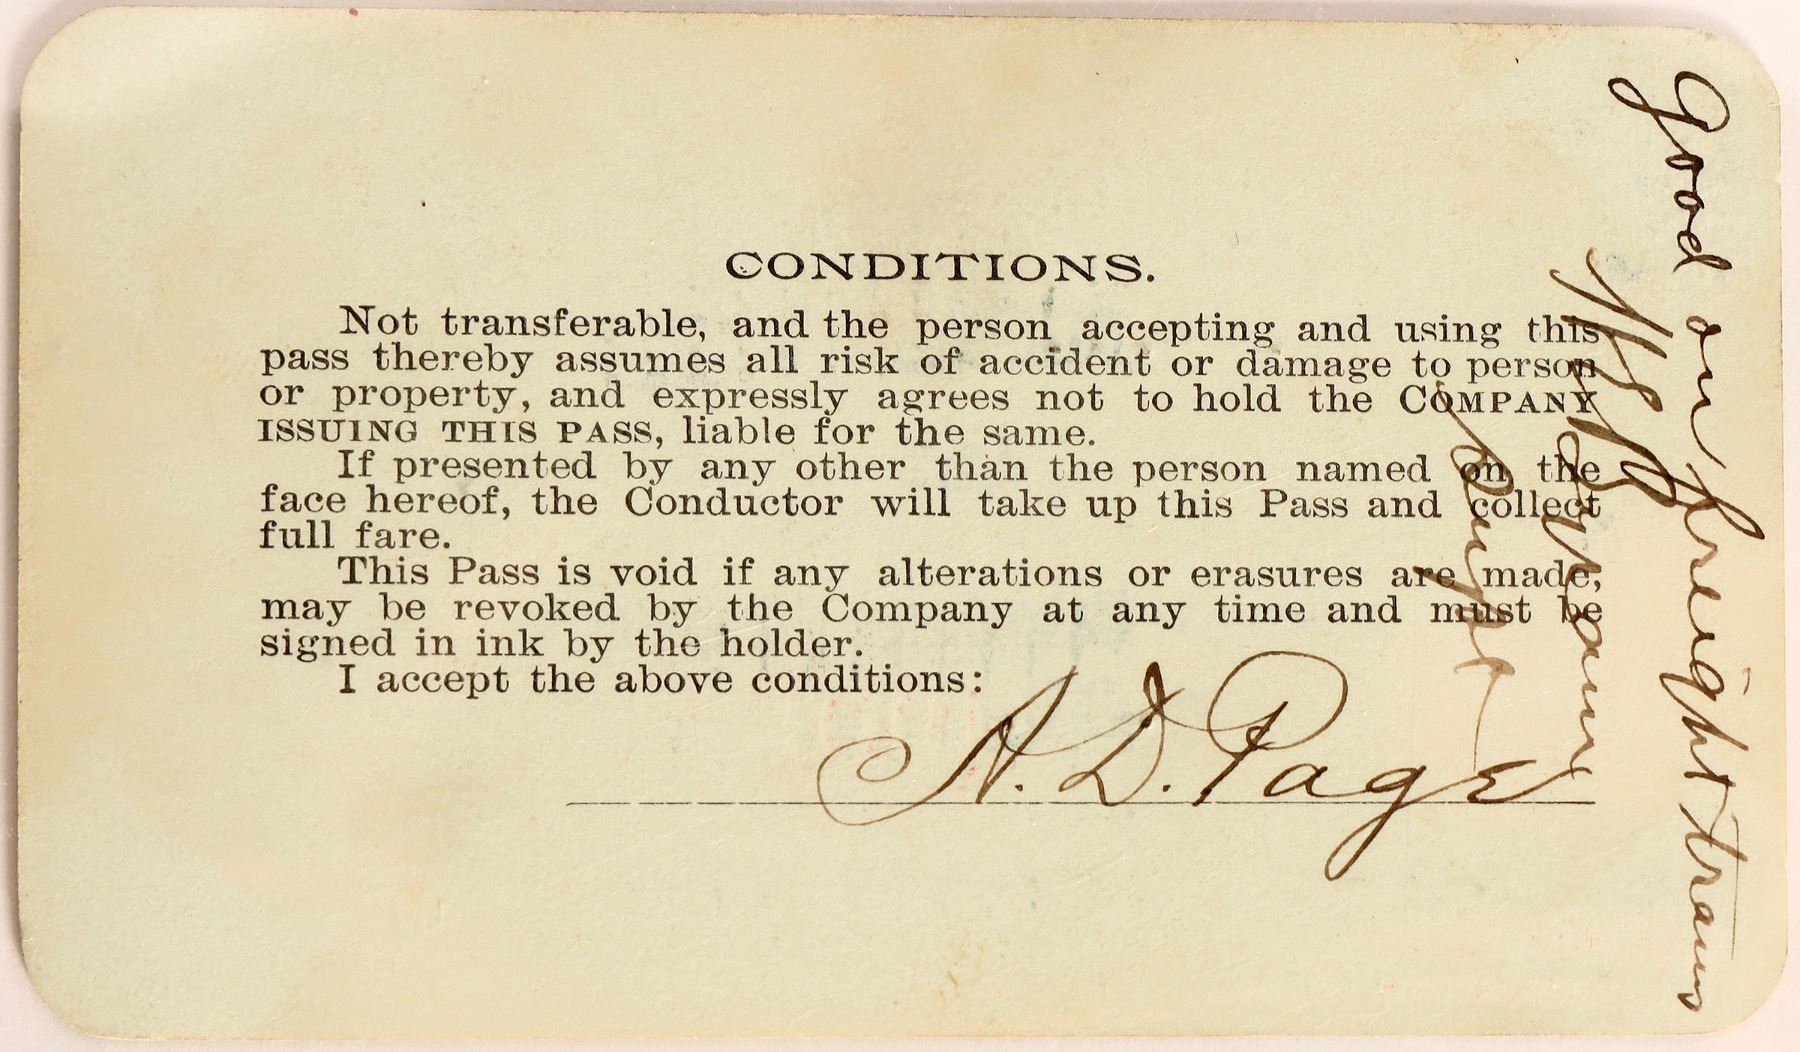 CONDITIONS.
Not transferable, and the person accepting and using this
pass thereby assumes all risk of accident or damage to person
or property, and expressly agrees not to hold the COMPANY
ISSUING THIS PASS, liable for the same.
If presented by any other than the person named on the
face hereof, the Conductor will take up this Pass and collect
full fare.
This Pass is void if any alterations or erasures are made,
may be revoked by the Company at any time and must be
signed in ink by the holder.
I accept the above conditions:
A. D. Page
Good on freight trains
Supt